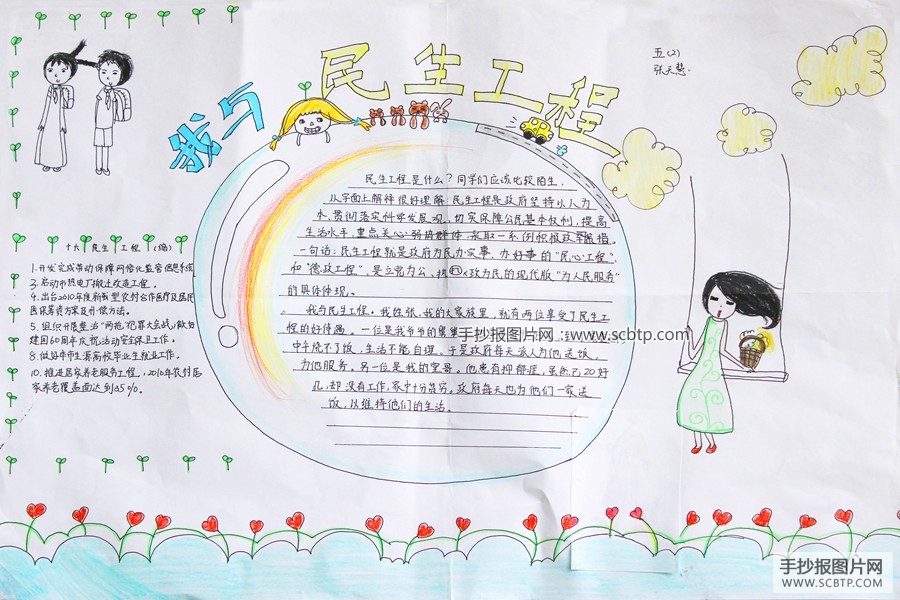 我与
民生工程
五(2)
张天慧
民生工程是什么？同学们应该比较陌生.
从字面上解释很好理解,民生工程是政府坚持以人为
本,贯彻落实科学发展观,切实保障公民基本权利,提高
生活水平,重点关心弱势群体,采取一系列积极政策措施.
一句话:民生工程就是政府为民办实事、办好事的“民心工程”
和“德政工程”,是立党为公、执政为民的现代版“为人民服务”
的具体体现。
我与民生工程。我姓张,我的大家族里,就有两位享受了民生工
程的好待遇。一位是我爷爷的
手抄报图片网 :www.scbtp.com
中午烧不了饭,生活不能自理。于是政府每天派人为他送饭,
为他服务。另一位是我的堂哥。他患有抑郁症,虽然已20好
几,却没有工作,家中十分贫穷。政府每天也为他们一家送
饭,以维持他们的生活。
十大民生工程(摘)
1.开发完成劳动保障网格化监管信息系统
3.启动市热电厂搬土改造工程.
4.出台2010年度新型农村合作医疗及居民
医保筹资方案及补偿方法.
5.组织开展整治“两抢”犯罪大会战,做好
建国60周年庆祝活动安全保卫工作.
8.做好中中生源高校毕业生就业工作.
10.推进居家养老服务工程,2010年农村居
家养老覆盖面达到65%.
手抄报图片网
WWW.SCBTP.COM